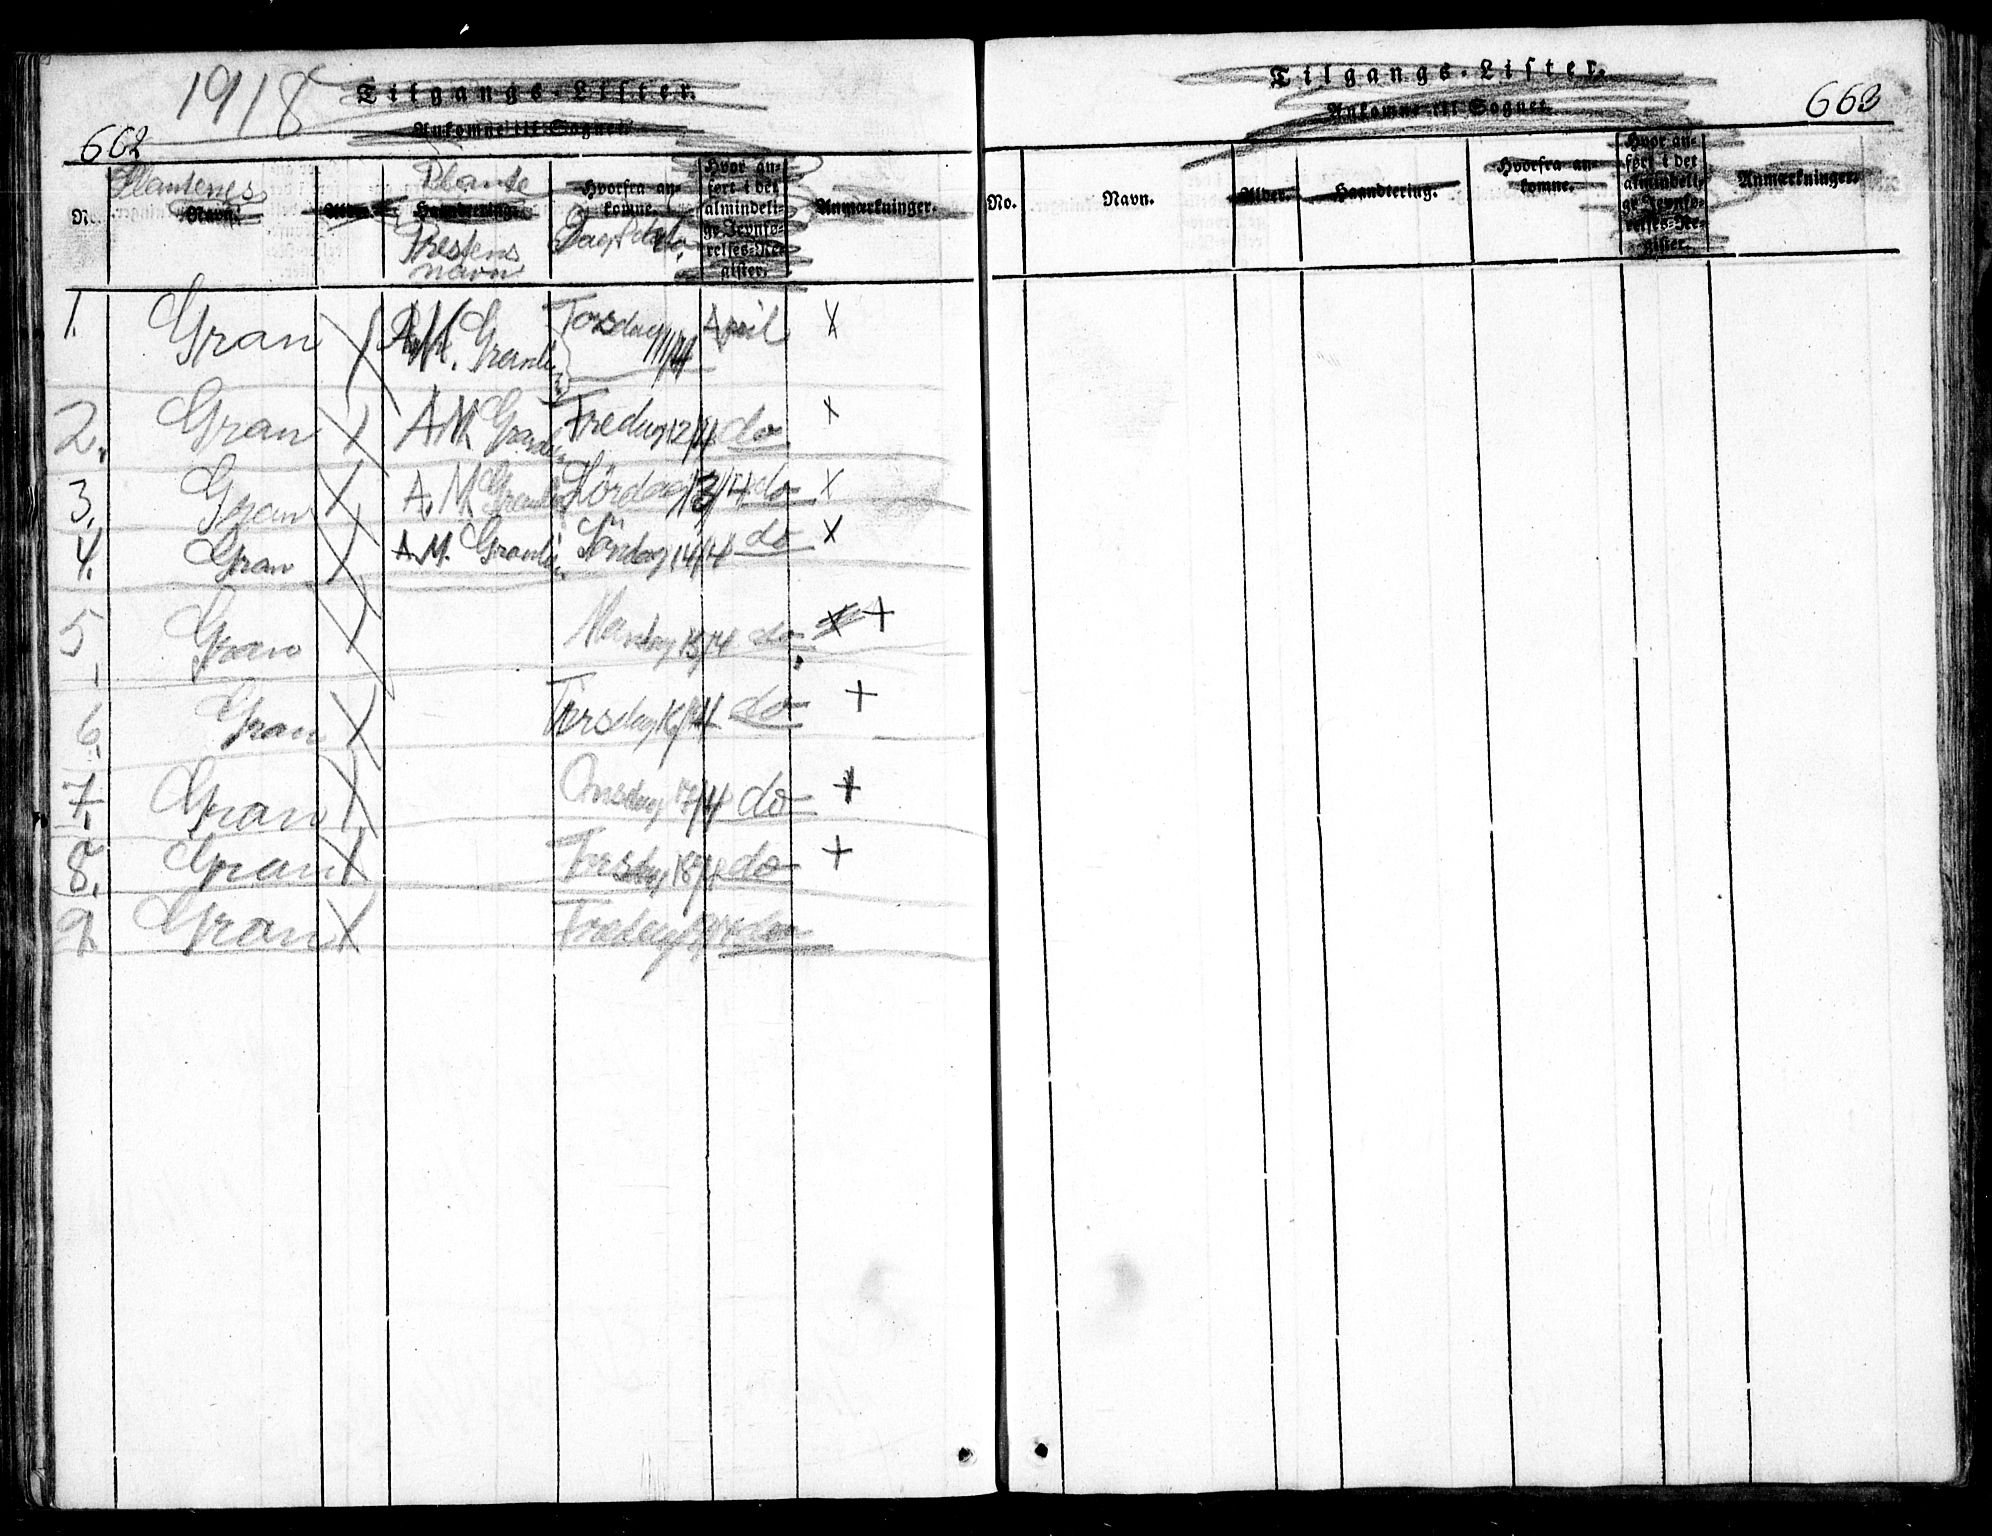 1918
Tilgangs-Lister.
662
Ankomne til Sognet.
No.
Plantenes
Navn.
Alder.
Plante
Haandtering.
Prestens
navn
Hvorfra an-
komne.
Dag dato
Hvor an-
ført i det
almindeli-
ge Jevnfø-
relses-Re-
gister.
Anmærkninger.
1. Gran X A.M. Granli Torsdag 11/4 April X
2. Gran X A.M. Granli Fredag 12/4 do X
3. Gran X A.M. Granli Lördag 13/4 do X
4. Gran X A.M. Granli Söndag 14/4 do X
5. Gran X Mandag 15/4 do X +
6. Gran X Tirsdag 16/4 do +
7. Gran X Onsdag 17/4 do +
8. Gran X Torsdag 18/4 do +
9. Gran X Fredag 19/4 do
Tilgangs-Lister.
663
Ankomne til Sognet.
No.
Navn.
Alder.
Haandtering.
Hvorfra an-
komne.
Hvor an-
ført i det
almindeli-
ge Jevnfø-
relses-Re-
gister.
Anmærkninger.